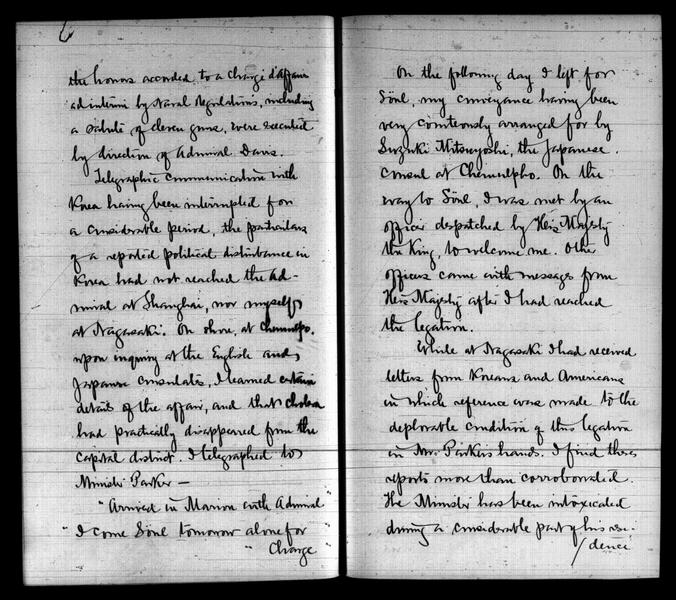 the honors accorded to a Chargé d'affaires
ad interim by Naval Regulations, including
a salute of eleven guns, were executed
by direction of Admiral Davis.
Telegraphic communication with
Korea having been interrupted for
a considerable period, the particulars
of a reported political disturbance in
Korea had not reached the Ad-
miral at Shanghai, nor myself
at Nagasaki. On shore, at Chemulpo.
upon inquiry at the English and
Japanese consulates, I learned certain
details of the affair, and that cholera
had practically disappeared from the
capital district. I telegraphed to
Minister Parker —
"Arrived in Marion with Admiral"
"I come Söul tomorrow alone for
"Charge"
On the following day I left for
Söul, my conveyance having been
very courteously arranged for by
Suzuki Mitsuyoshi, the Japanese
consul at Chemulpho. On the
way to Söul, I was met by an
officer despatched by His Majesty
the King, to welcome me. Other
officers came with messages from
His Majesty after I had reached
the legation.
While at Nagasaki I had received
letters from Koreans and Americans
in which reference was made to the
deplorable condition of this legation
in Mr. Parker's hands. I find these
reports more than corroborated.
The Minister has been intoxicated
during a considerable part of his resi-
/dence